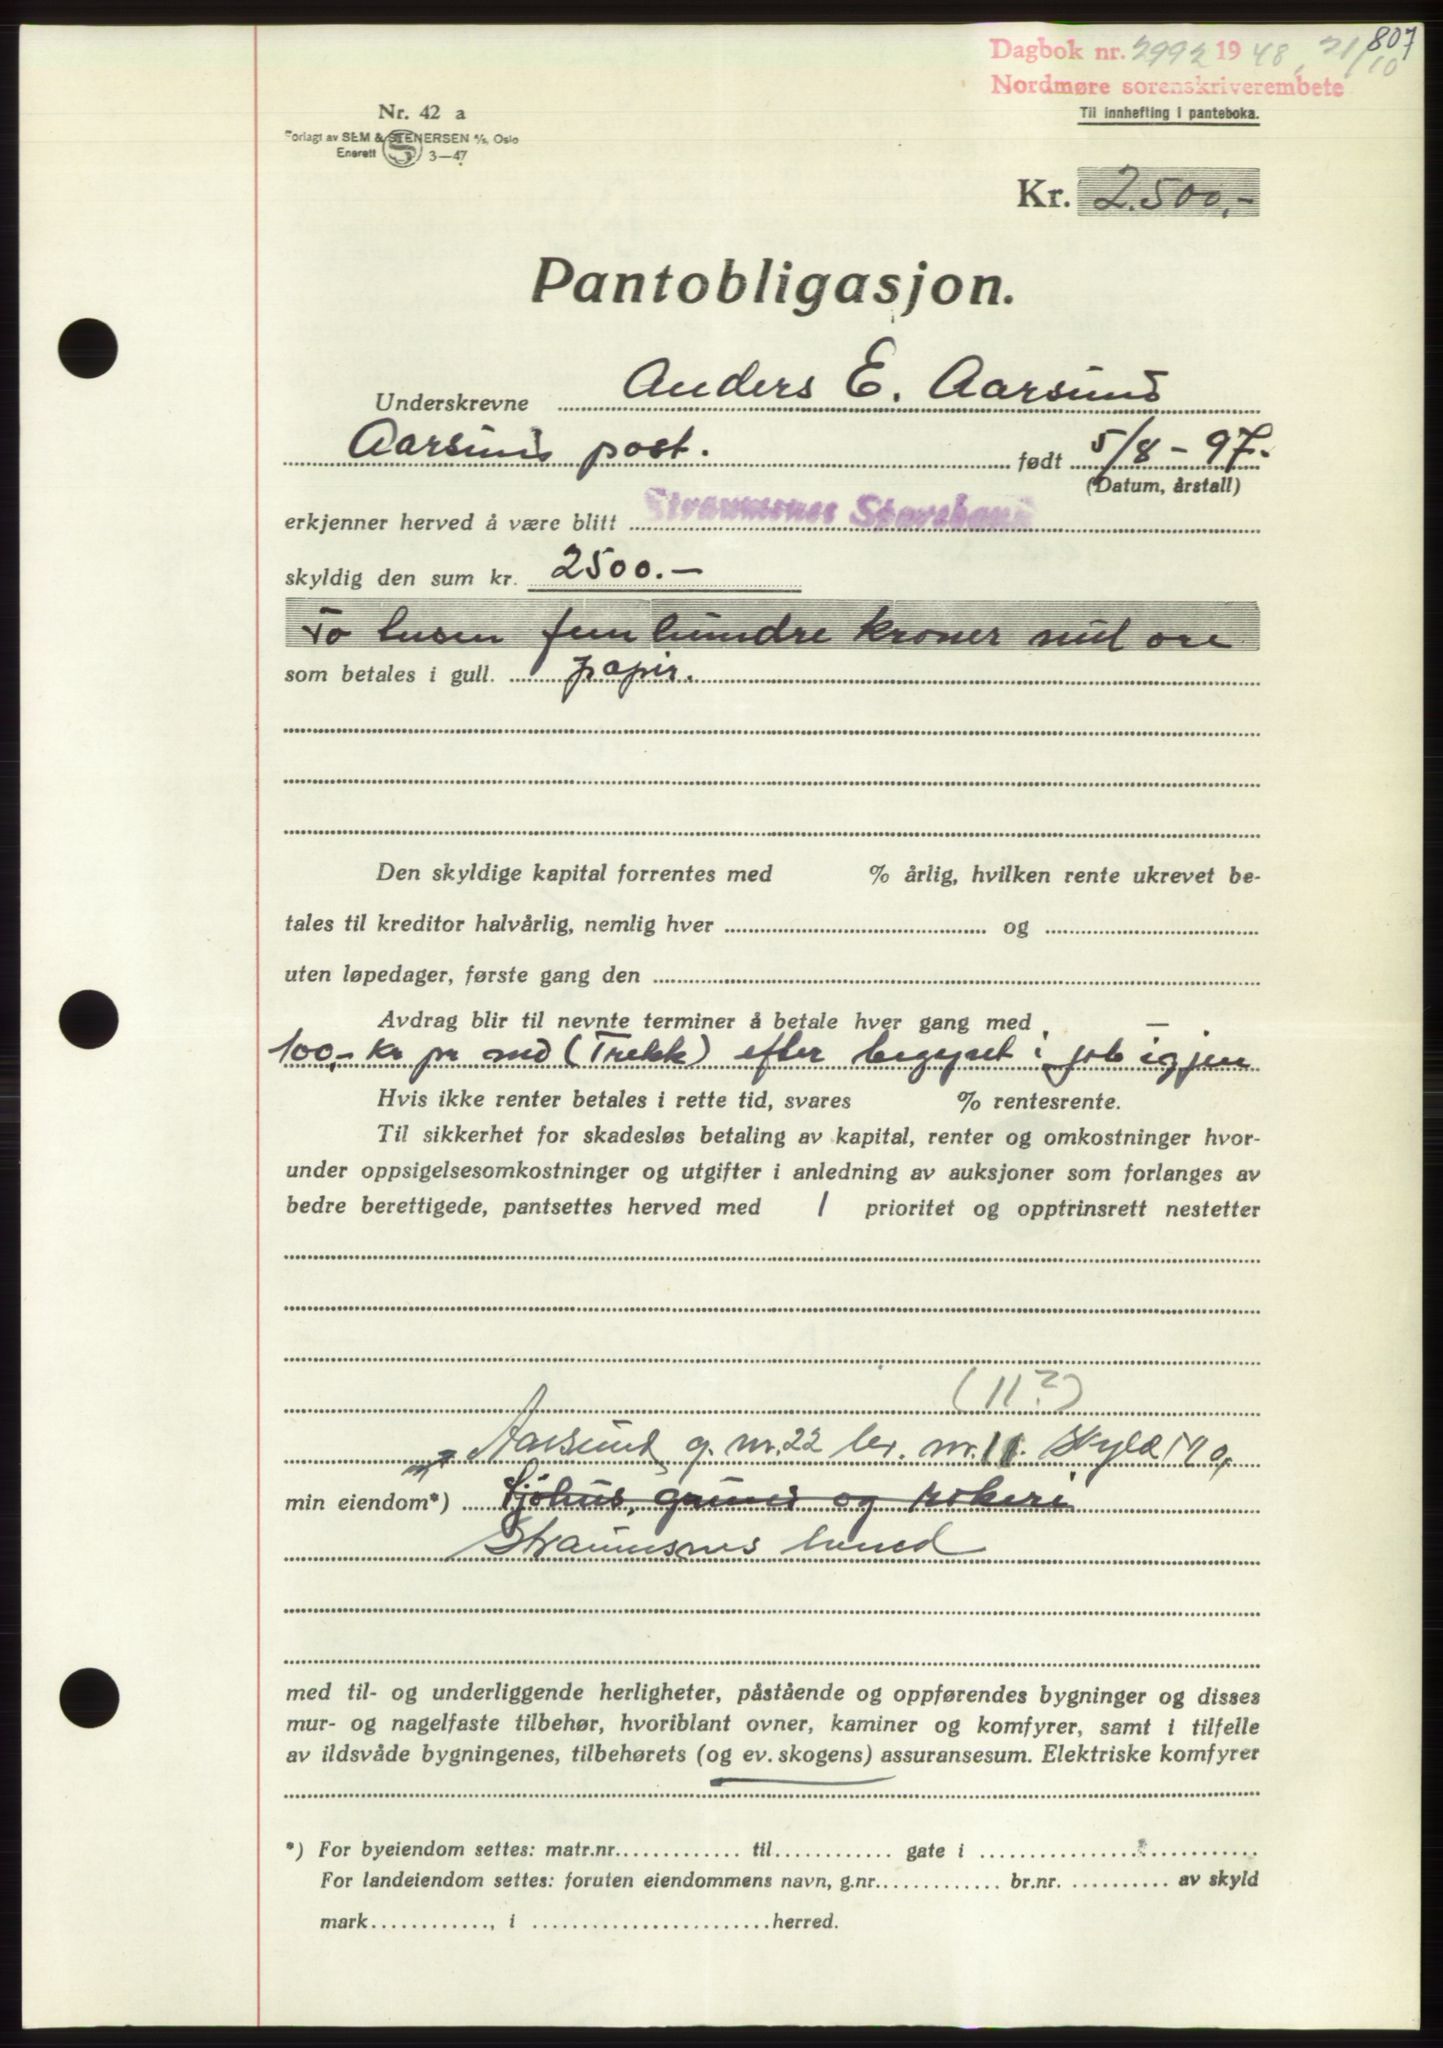 807
Dagbok nr. 2992 1948, 21/10
Nordmøre sorenskriverembete
Til innhefting i panteboka.
Nr. 42 a
Forlagt av SEM & STENERSEN A/S, Oslo
Enerett S 3—47
Kr. 2.500,-
Pantobligasjon.
Underskrevne Anders E. Aarsund
Aarsund post. født 5/8 - 97.
(Datum, årstall)
erkjenner herved å være blitt Straumsnes Sparebank
skyldig den sum kr. 2500.-
To tusen fem hundre kroner null øre
som betales i gull. papir.
Den skyldige kapital forrentes med % årlig, hvilken rente ukrevet be-
tales til kreditor halvårlig, nemlig hver og
uten løpedager, første gang den
Avdrag blir til nevnte terminer å betale hver gang med
100,- kr pr md (Trekk) efter begynt i job igjen
Hvis ikke renter betales i rette tid, svares % rentesrente.
Til sikkerhet for skadesløs betaling av kapital, renter og omkostninger hvor-
under oppsigelsesomkostninger og utgifter i anledning av auksjoner som forlanges av
bedre berettigede, pantsettes herved med 1 prioritet og opptrinsrett nestetter
(11?)
Aarsund g. nr. 22 br. nr. 11. Skyld
min eiendom*) Sjøhus, grund og
Straumsnes herred
med til- og underliggende herligheter, påstående og oppførendes bygninger og disses
mur- og nagelfaste tilbehør, hvoriblant ovner, kaminer og komfyrer, samt i tilfelle
av ildsvåde bygningenes, tilbehørets (og ev. skogens) assuransesum. Elektriske komfyrer
*) For byeiendom settes: matr.nr. til gate i
For landeiendom settes: foruten eiendommens navn, g.nr. br.nr. av skyld
mark , i herred.